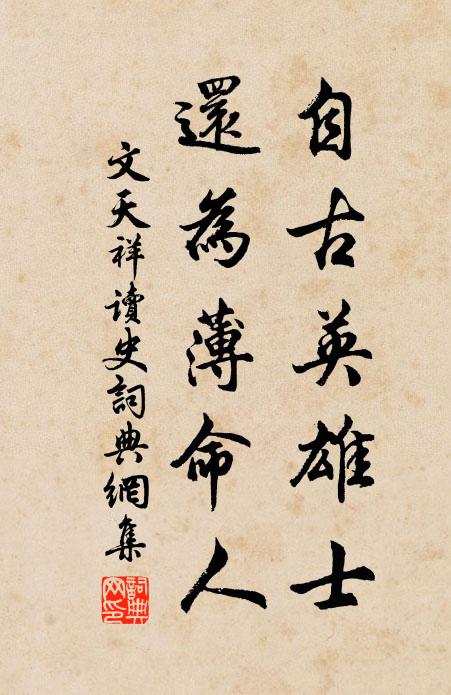 自古英雄士
還為薄命人
文天祥讀史詞典網集
詞典網印